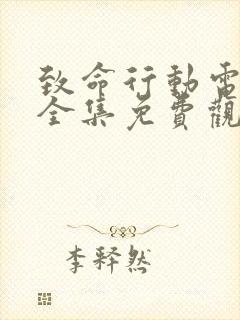 致命行動電
全集免費觀
李釋然